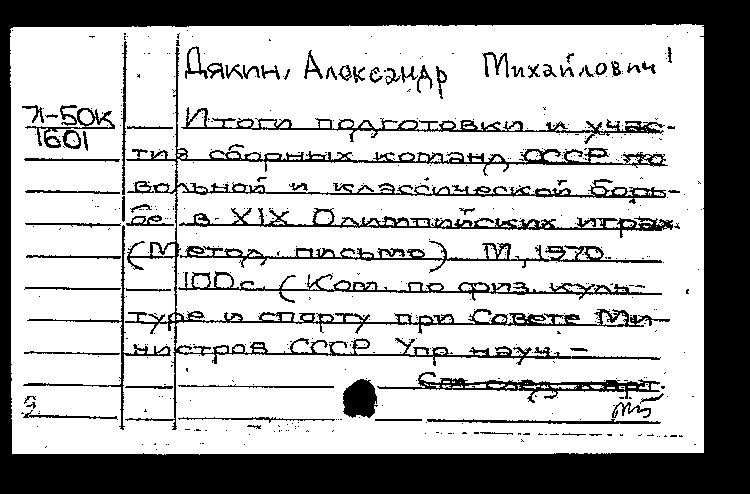 Дякин, Александр Михайлович
71-50К
1601
Итоги подготовки и учас-
тия сборных команд СССР по
вольной и классической борь-
бе в XIX Олимпийских играх.
(Метод. письмо). М., 1970.
100 с. (Ком. по физ. куль-
туре и спорту при Совете Ми-
нистров СССР. Упр. науч. -
См. след. карт.